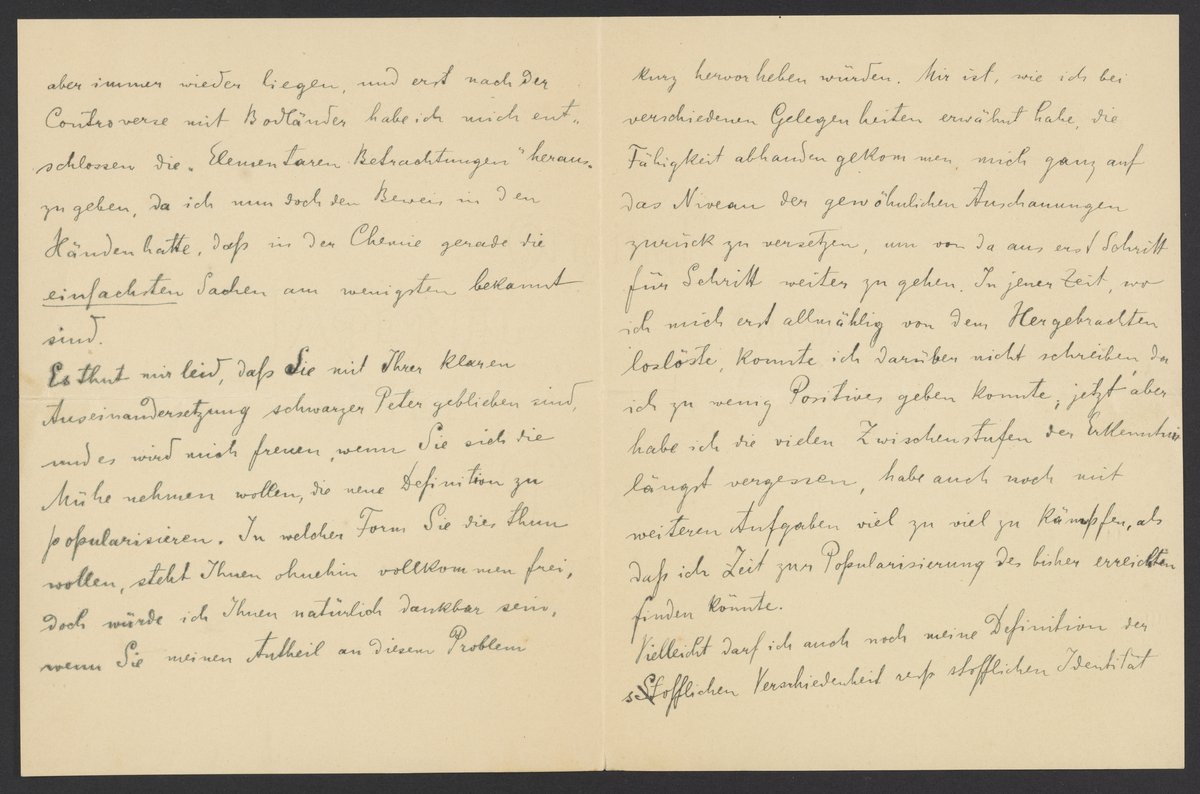 aber immer wieder liegen, und erst nach der
Controverse mit Bodländer habe ich mich ent„
schlossen die „Elementaren Betrachtungen" heraus„
zugeben, da ich nun doch den Beweis in den
Händen hatte, daß in der Chemie gerade die
einfachsten Sachen am wenigsten bekannt
sind.
Es thut mir leid, daß Sie mit Ihrer klaren
Auseinandersetzung schwarzer Peter geblieben sind,
und es wird mich freuen, wenn Sie sich die
Mühe nehmen wollen, die neue Definition zu
popularisieren. In welcher Form Sie dies thun
wollen, steht Ihnen ohnehin vollkommen frei,
doch würde ich Ihnen natürlich dankbar sein,
wenn Sie meinen Antheil an diesem Problem
kurz hervorheben würden. Mir ist, wie ich bei
verschiedenen Gelegenheiten erwähnt habe, die
Fähigkeit abhanden gekommen, mich ganz auf
das Niveau der gewöhnlichen Anschauungen
zurück zu versetzen, um von da aus erst Schritt
für Schritt weiter zu gehen. In jener Zeit, wo
ich mich erst allmählig von dem Hergebrachten
loslöste, konnte ich darüber nicht schreiben, da
ich zu wenig Positives geben konnte; jetzt aber
habe ich die vielen Zwischenstufen der Erkenntnis
längst vergessen, habe auch noch mit
weiteren Aufgaben viel zu viel zu kämpfen, als
daß ich Zeit zur Popularisierung des bisher erreichten
finden könnte.
Vielleicht darf ich auch noch meine Definition der
stofflichen Verschiedenheit resp stofflichen Identität